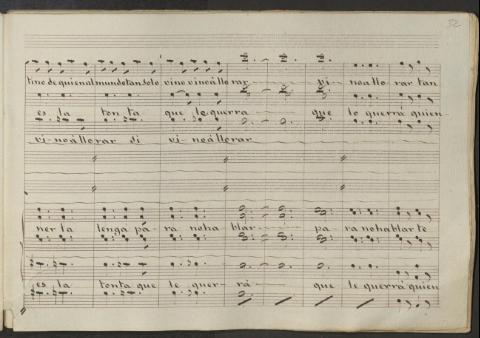 52
tino de quien al mundo tan solo vino vino á llo rar vi no a llo rar tan
es la ton ta que le querra que le querrá quien
vi-no á llo rar di vi no á llo rar
ner la lenga pá ra no ha blar pa ra no ha blar te
es la tonta que le quer rá que le querrá quien